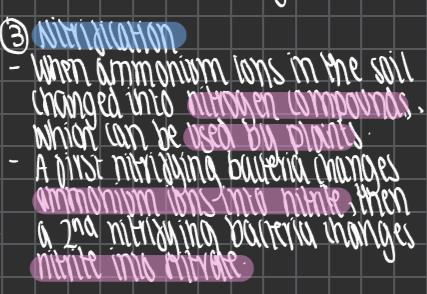 ③ Nitrification
- When ammonium ions in the soil
changed into nitrogen compounds,
which can be used by plants.
- A first nitrifying bacteria changes
ammonium ions into nitrite, then
a 2nd nitrifying bacteria changes
nitrite into nitrate.